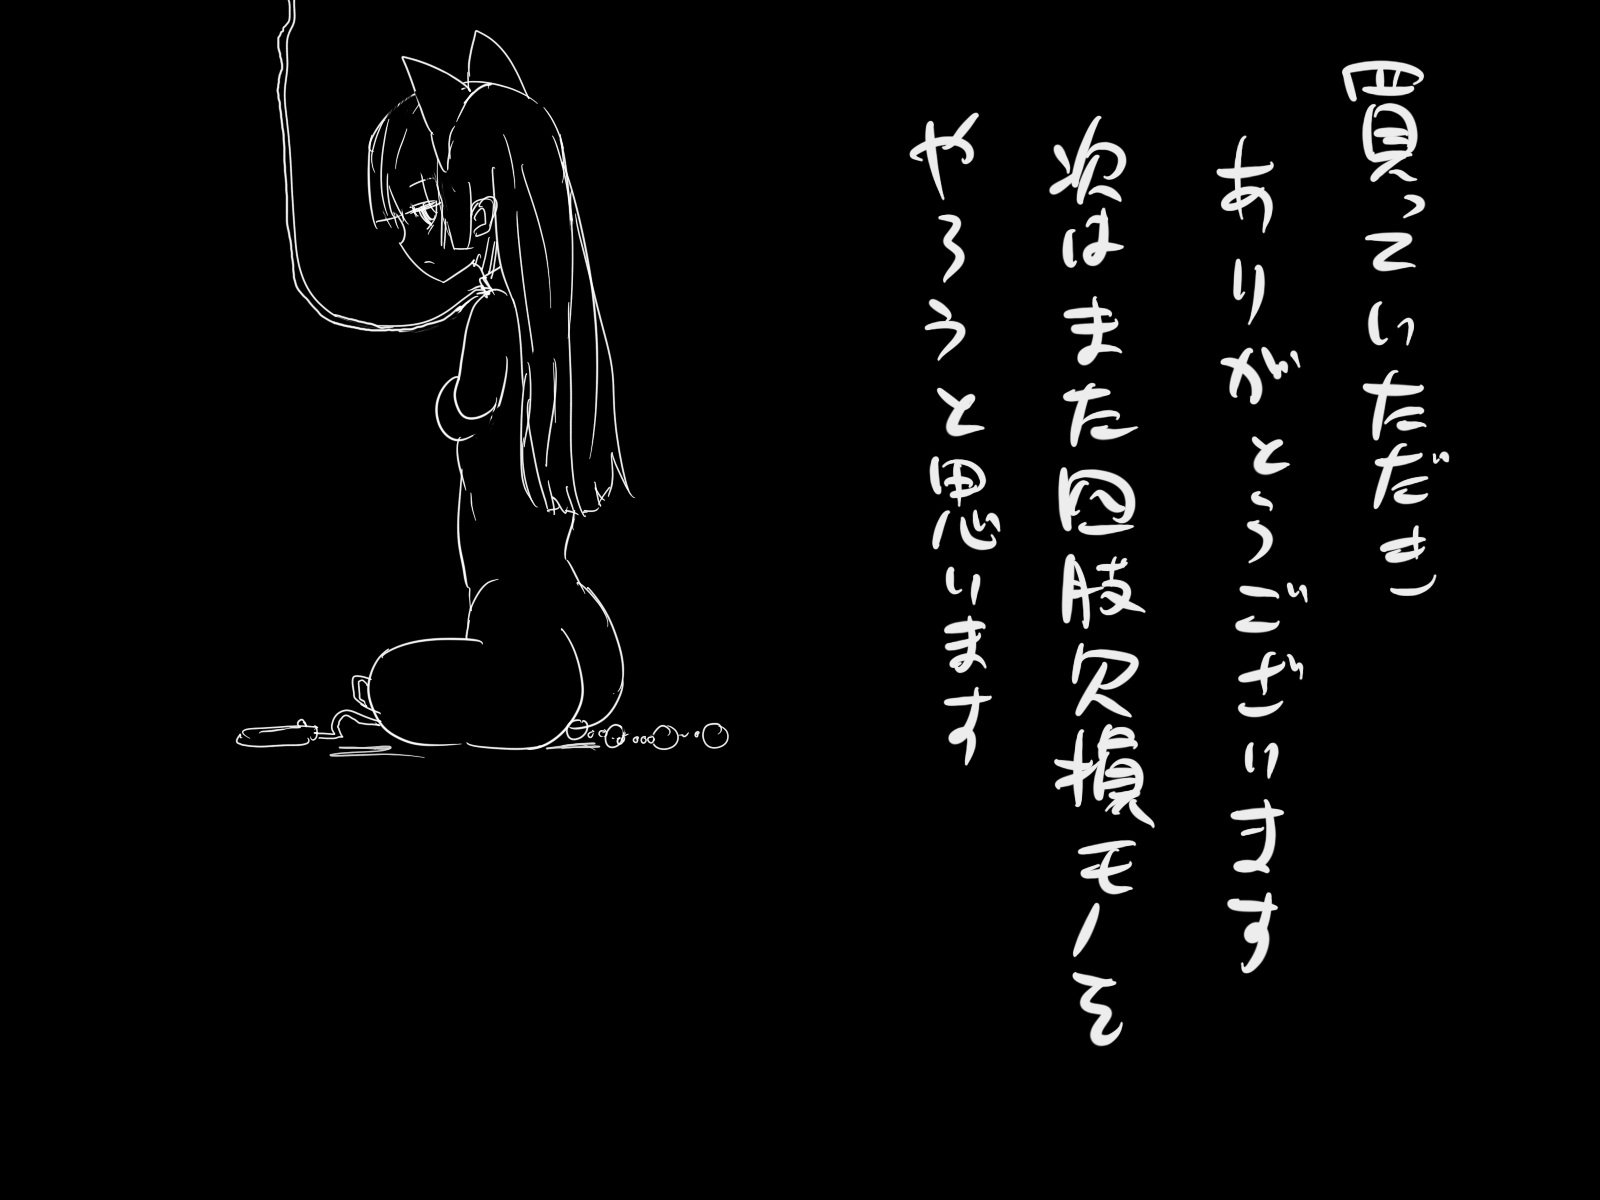 買っていただき
ありがとうございます
次はまた四肢欠損モノを
やろうと思います